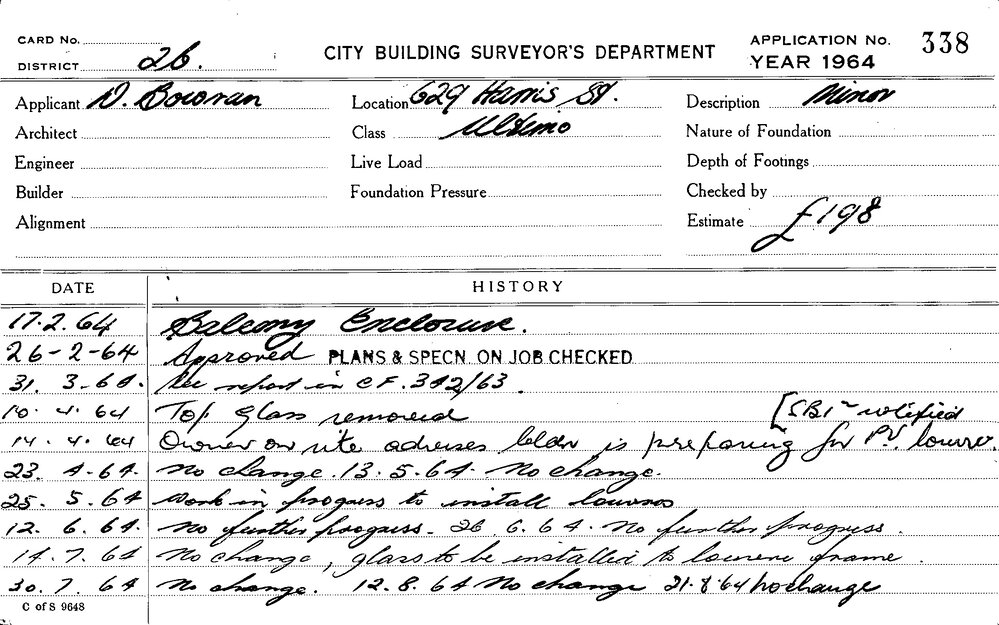 CARD No.
DISTRICT 26.
CITY BUILDING SURVEYOR'S DEPARTMENT
APPLICATION No. 338
YEAR 1964
Applicant D. Bowran Location 629 Harris St. Description Minor
Architect Class Ultimo Nature of Foundation
Engineer Live Load Depth of Footings
Builder Foundation Pressure Checked by
Alignment Estimate £198
DATE HISTORY
17.2.64 Balcony Enclosure.
26-2-64 Approved PLANS & SPECN. ON JOB CHECKED
31. 3.64. See report in C.F. 342/63.
10. 4. 64 Top glass removed [SBI notified
14. 4. 64 Owner on site advises bldr is preparing for louvre.
23. 4.64. No change. 13.5.64. No change.
25. 5. 64 Work in progress to install louvres
12. 6. 64. No further progress. 26 6.64. No further progress.
14.7.64 No change, glass to be installed to louvre frame
30.7.64 No change. 12.8.64 No change 21.8.64 No change
C of S 9648